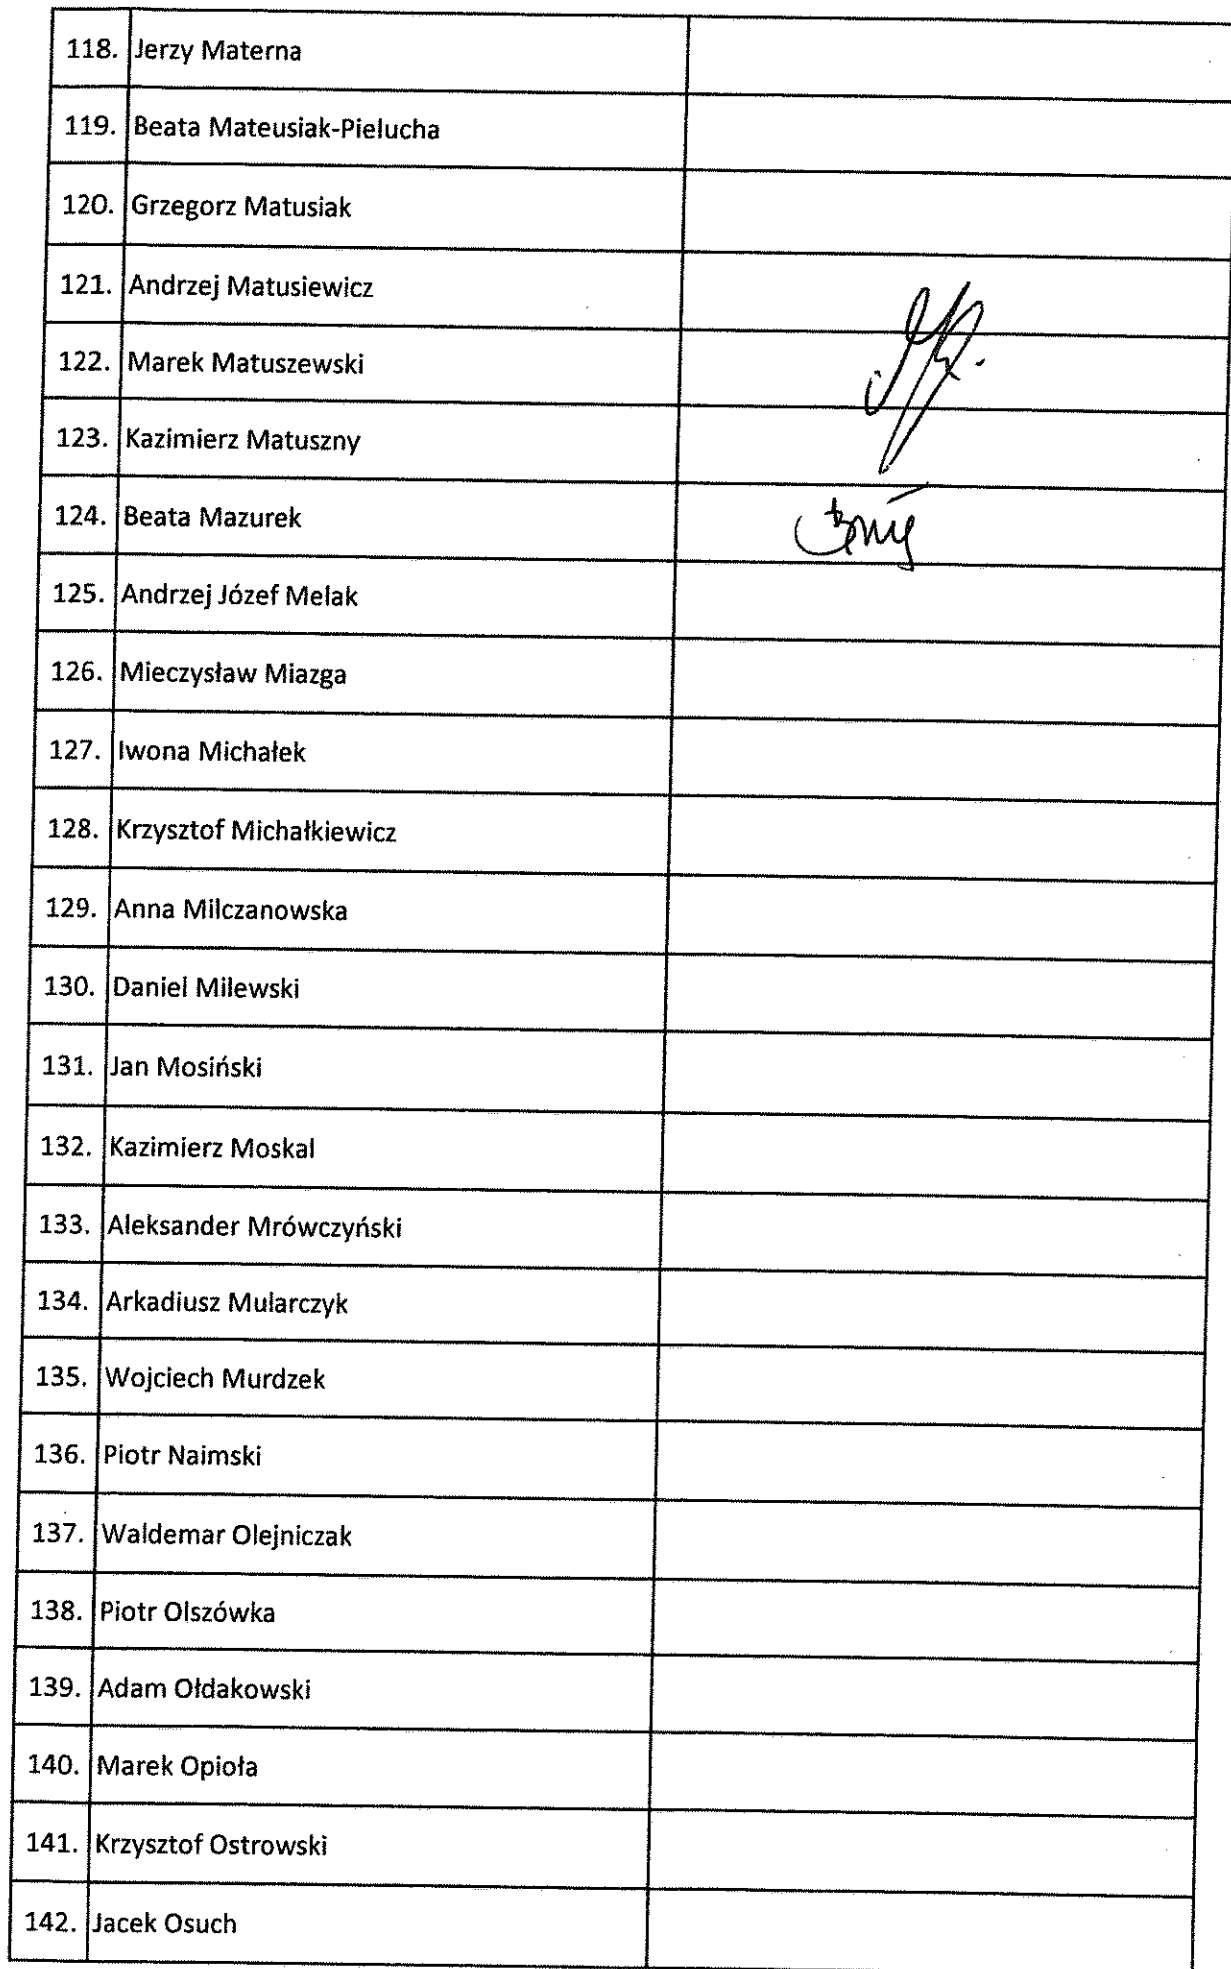 118. Jerzy Materna
119. Beata Mateusiak-Pielucha
120. Grzegorz Matusiak
121. Andrzej Matusiewicz
122. Marek Matuszewski
123. Kazimierz Matuszny
124. Beata Mazurek
125. Andrzej Józef Melak
126. Mieczysław Miazga
127. Iwona Michałek
128. Krzysztof Michałkiewicz
129. Anna Milczanowska
130. Daniel Milewski
131. Jan Mosiński
132. Kazimierz Moskal
133. Aleksander Mrówczyński
134. Arkadiusz Mularczyk
135. Wojciech Murdzek
136. Piotr Naimski
137. Waldemar Olejniczak
138. Piotr Olszówka
139. Adam Ołdakowski
140. Marek Opioła
141. Krzysztof Ostrowski
142. Jacek Osuch